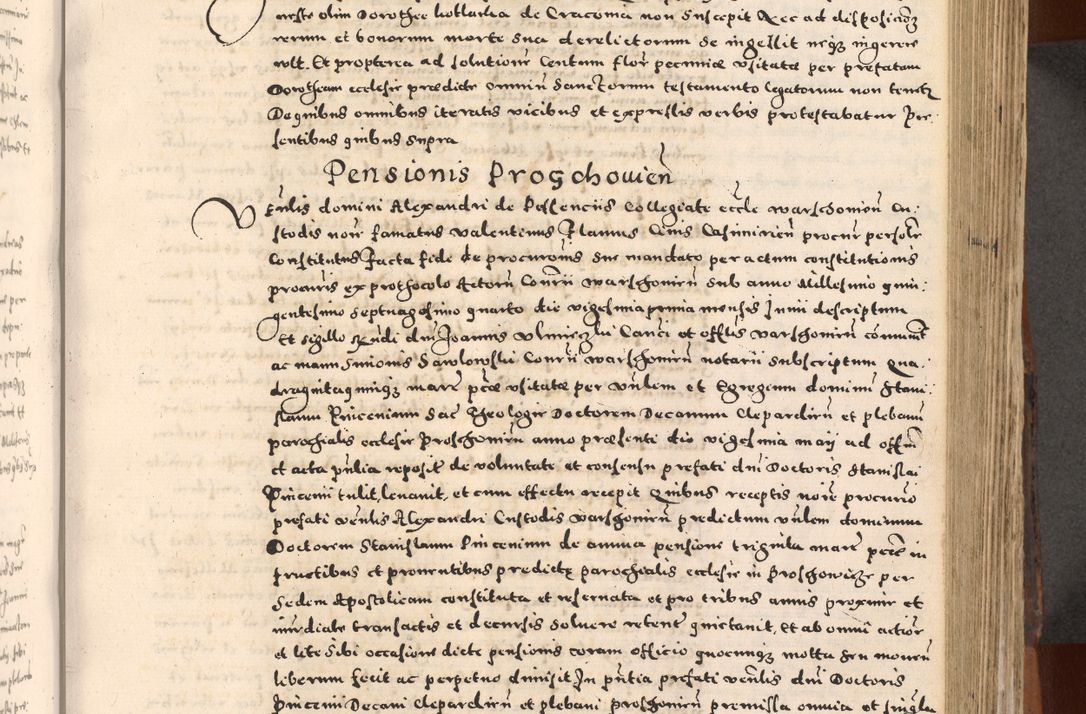 neste olim Dorothee Kollarka de Cracovia non suscepit Nec ad dispositionem
rerum et bonorum morte sua derelictorum se ingessit neque ingerere
vult. Et propterea ad solutionem Centum flor pecuniæ usitatæ per prefatam
Dorotheam ecclesie predicte omnium Sanctorum testamento legatorum non tenetur
De quibus omnibus iteratis vicibus et expressis verbis protestabatur Pre-
sentibus quibus supra
Pensionis Proschovien
Venlis domini Alexandri de Pessenciis Collegiate eccle warschovien Cu:
stodis noie famatus Valentinus Flamus Civis Casimirien procur persolr
Constitutus facta fide de procuronis sue mandato per actum constitutionis
procuris ex prothocolo Actorum Consrii warschovien sub anno Millesimo quin:
gentesimo septuagesimo quarto die vigesima prima mensis Junii descriptum
Et sigillo Rendi dni Joannis Canci et offlis varschovien communit
ac manu Simonis Sawlowski Consrii warschovien notarii subscriptum Qua:
draginta quinque marc pcæ usitatæ per Vnlem et Egregium dominum Stani:
slaum Sac Theologie Doctorem Decanum Clepardien et plebanum
parochialis ecclesie Proschovien anno præsenti die vigesima maij ad offm
et acta pntia reposit de voluntate et consensu prefati dni Doctoris Stanislai
tulit, levavit, et cum effectu recepit Quibus receptis noie procurio
prefati venlis Alexandri Custodis varschovien predictum vnlem dominum
Doctorem Stanislaum de annua pensione triginta marc pece in
fructibus et proventibus predictę parochialis ecclesie in Proschowicze per
Sedem Apostolicam constituta et reservata et pro tribus annis proxime et
immediate transactis et decursis solvere retent quietavit, Et ab omni actior
et lite sibi occasione dicte pensionis coram officio quocumque motta seu movend
liberum fecit ac perpetuo dimisit In pntia prefati venlis dni Doctoris
Decani Clepardien et plebani proschovien premissa omnia et singla